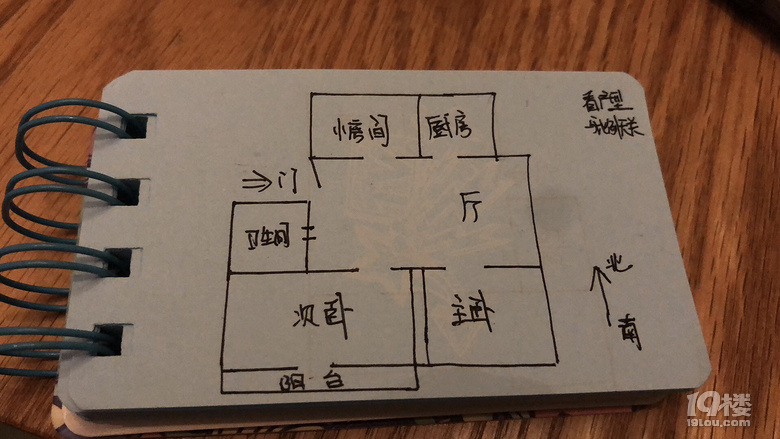 小房间
厨房
看户型
⇒门
厅
卫生间
北
次卧
主卧
南
阳台
19楼
19lou.com